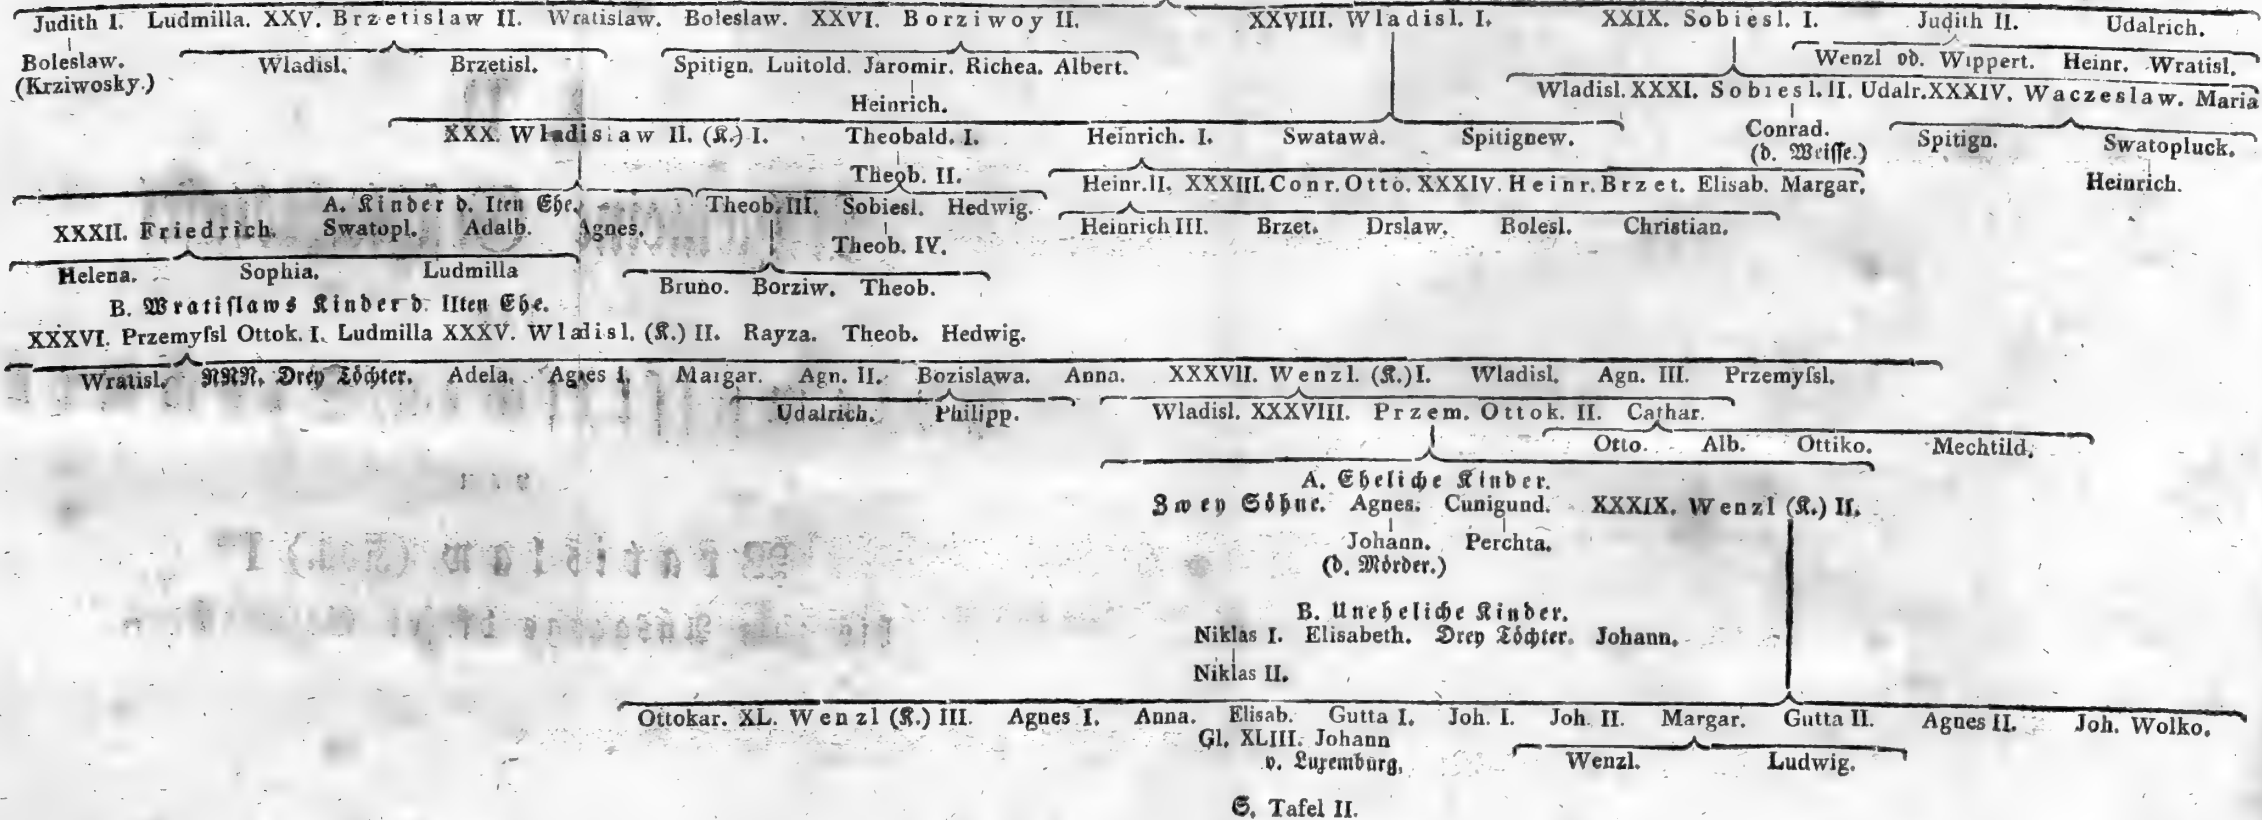 Judith I. Ludmilla. XXV. Brzetislaw II. Wratislaw. Boleslaw. XXVI. Borziwoy II. XXVIII. Wladisl. I. XXIX. Sobiesl. I. Judith II. Udalrich.
Boleslaw. Wladisl. Brzetisl. Spitign. Luitold. Jaromir. Richea. Albert. Wenzl od. Wippert. Heinr. Wratisl.
(Krziwosky.) Heinrich. Wladisl. XXXI. Sobiesl. II. Udalr. XXXIV. Waczeslaw. Maria
XXX. Wladislaw II. (K.) I. Theobald. I. Heinrich. I. Swatawa. Spitignew. Conrad. Spitign. Swatopluck.
(d. Weisse.)
Theob. II. Heinr. II. XXXIII. Conr. Otto. XXXIV. Heinr. Brzet. Elisab. Margar. Heinrich.
A. Kinder d. Iten Ehe. Theob. III. Sobiesl. Hedwig.
XXXII. Friedrich. Swatopl. Adalb. Agnes. Theob. IV. Heinrich III. Brzet. Drslaw. Bolesl. Christian.
Helena. Sophia. Ludmilla Bruno. Borziw. Theob.
B. Wratislaws Kinder d. IIten Ehe.
XXXVI. Przemyſsl Ottok. I. Ludmilla XXXV. Wladisl. (K.) II. Rayza. Theob. Hedwig.
Wratisl. NNN. Drey Töchter. Adela. Agnes I. Margar. Agn. II. Bozislawa. Anna. XXXVII. Wenzl. (K.) I. Wladisl. Agn. III. Przemyſsl.
Udalrich. Philipp. Wladisl. XXXVIII. Przem. Ottok. II. Cathar.
Otto. Alb. Ottiko. Mechtild.
A. Eheliche Kinder.
Zwey Söhne. Agnes. Cunigund. XXXIX. Wenzl (K.) II.
Johann. Perchta.
(d. Mörder.)
B. Uneheliche Kinder.
Niklas I. Elisabeth. Drey Töchter. Johann.
Niklas II.
Ottokar. XL. Wenzl (K.) III. Agnes I. Anna. Elisab. Gutta I. Joh. I. Joh. II. Margar. Gutta II. Agnes II. Joh. Wolko.
Gl. XLIII. Johann
v. Luxemburg. Wenzl. Ludwig.
S. Tafel II.